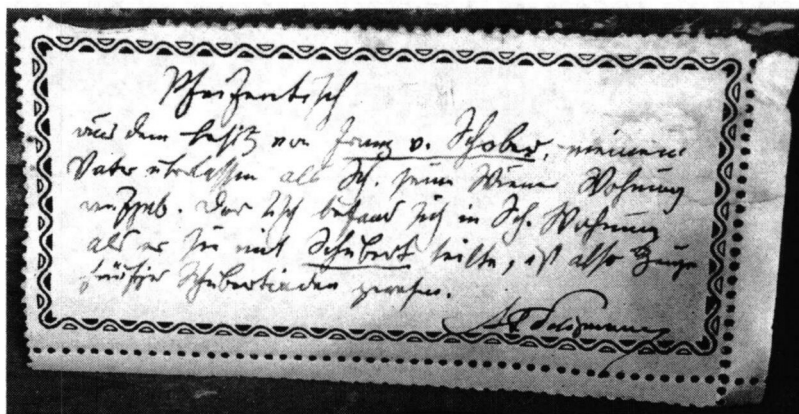 Pfeifentisch
aus dem Besitz von Franz v. Schober, meinem
Vater überlassen als Sch. seine Wiener Wohnung
aufgab. Der Tisch befand sich in Sch. Wohnung
als er sie mit Schubert teilte, ist also Zeuge
Schubertiaden gewesen.